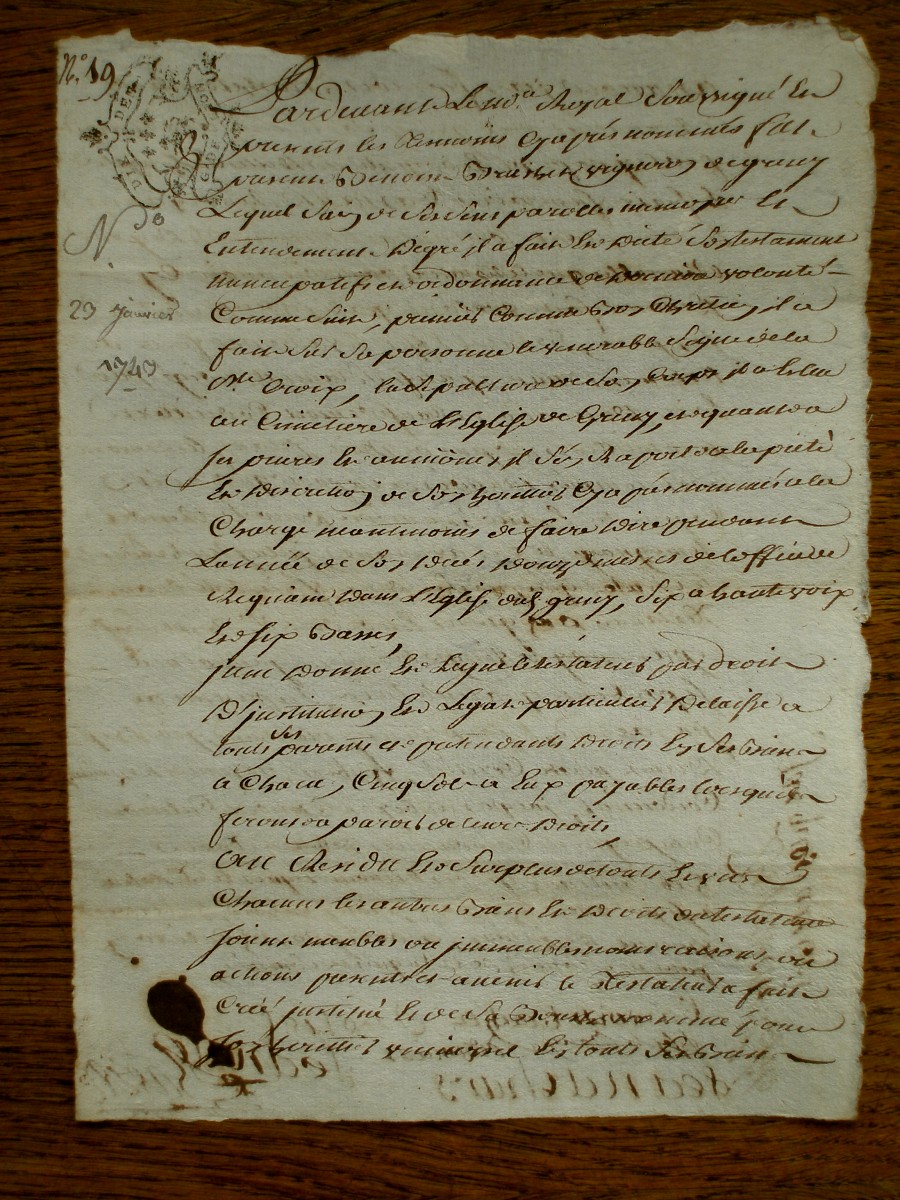 N.º 19
Pardevant le no.re Royal Soussigné Et
presents les Temoins Cyaprés nommés fut
present Benoist vigneron de grezy
Lequel Sain de Ses Sens parolles memoire Et
Entendement De gré il a fait Et Dicté Son testament
nuncupatif et ordonnance de Derniere volonté
N 30
Comme Suit, premier Comme bon Chretien, il a
23 janvier
fait Sur Sa personne le venerable Signe de la
1743
S.te Croix, la Sepulture de Son Corps il a Eslue
au Cimetiere de L'Eglise de Grezy, et quant a
Ses prieres Et aumones, il S'en Raporte a la pieté
Et Discretion de Son heritier Cyaprés nommé a la
Charge neantmoins de faire Dire pendant
L'année de Son Decés Douze messes de L'office de
Requiem Dans L'Eglise dud. grezy, Six a haute voix
Et Six Basses,
Item Donne Et Legue le testateur par droit
D'institution Et Legat particulier Delaisse a
touts ses parents et pretendants Droits En Ses Biens
a Chacun Cinq Sols a Eux payables lorsqu'ils
feront a paroir de leurs Droits,
Au Residu Et Surplus de touts Et un
Chacuns les autres Biens Et Droits du testateur
Soient meubles ou immeubles noms raisons ou
actions presents et avenir le Testateur a fait
Créé institué Et de Sa Bouche nommé pour
Son heritier universel En touts Ses Biens